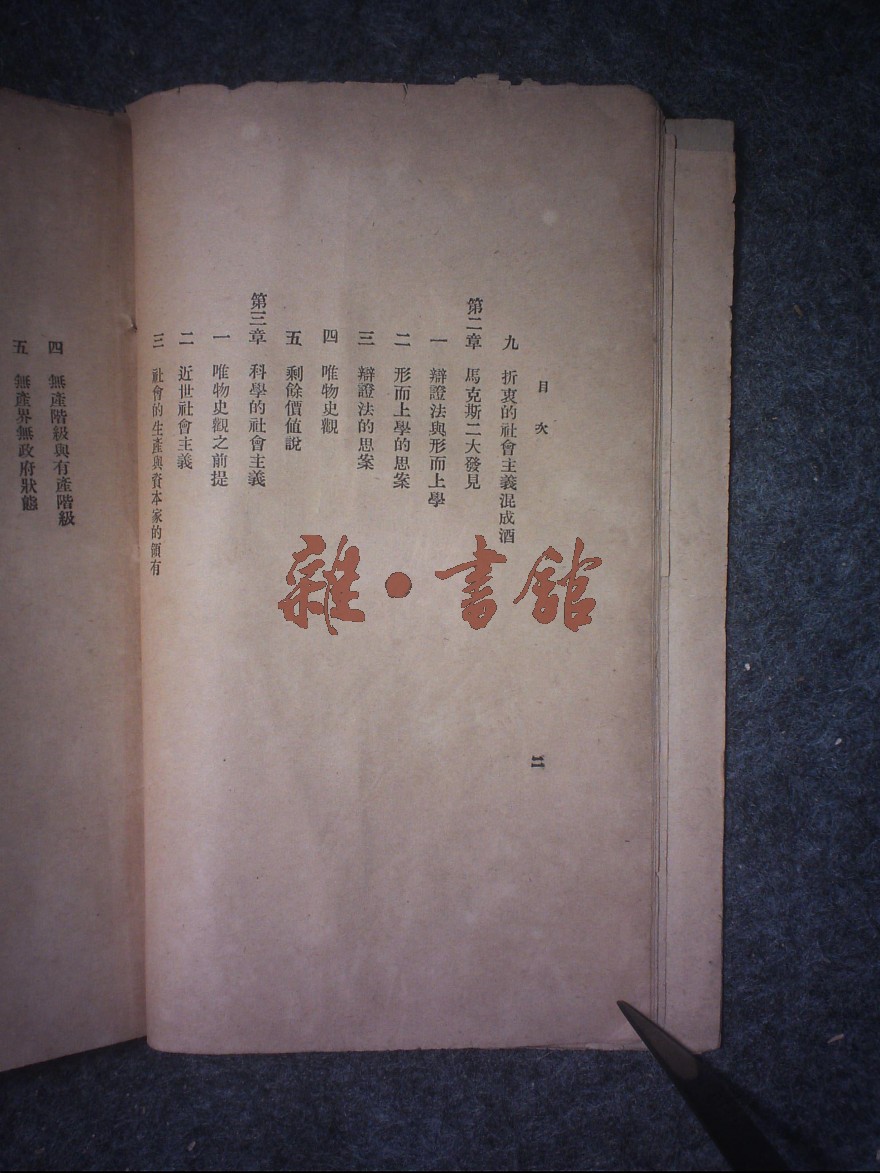 目次
二
九 折衷的社會主義混成酒
第二章 馬克斯二大發見
一 辯證法與形而上學
二 形而上學的思案
三 辯證法的思案
四 唯物史觀
五 剩餘價値說
第三章 科學的社會主義
一 唯物史觀之前提
二 近世社會主義
三 社會的生產與資本家的領有
四 無產階級與有產階級
五 無產界無政府狀態
雜·書館